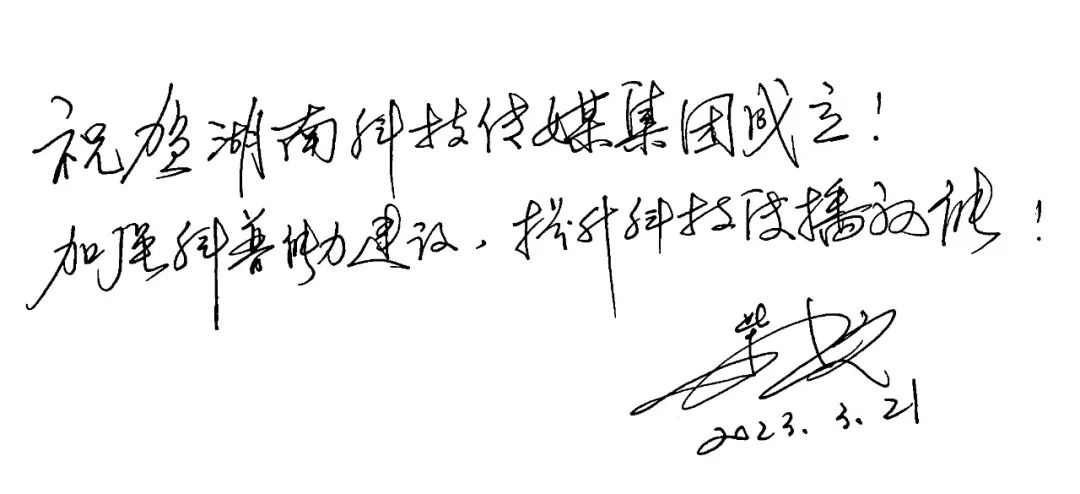 祝贺湖南科技传媒集团成立！
加强科普能力建设，提升科技传播效能！
2023.3.21